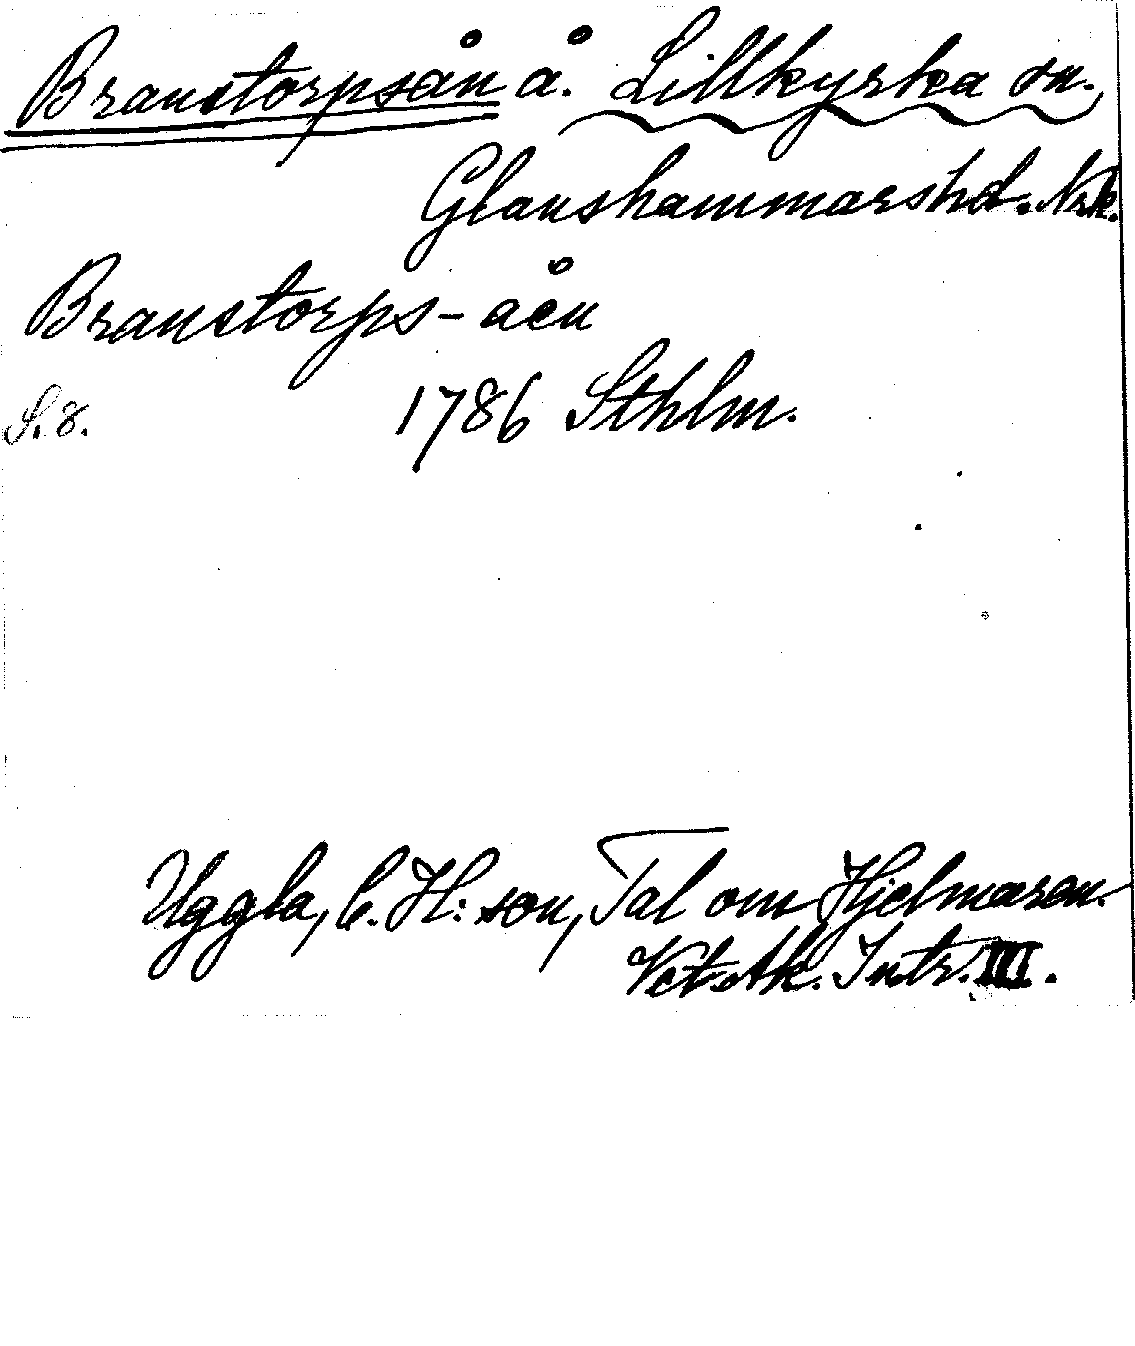 Branstorpsån å. Lillkyrka sn.,
Glanshammarshd. Nrk.
Branstorps-åen
S. 8. 1786 Sthlm.
Uggla, C. H:son, Tal om Hjelmaren.
Vet. Ak. Intr. III.